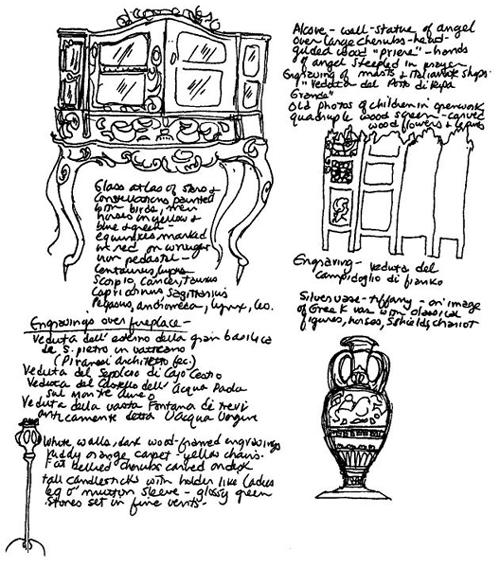 Alcove - wall - statue of angel
over large cherubs - hand-
gilded wood "priere" - hands
of angel steepled in prayer
Engraving of masts & Italianate ships
"Veduta del Porto di Ripa
Grande"
Old photos of children in openwork
quadruple wood screen - carved
wood flowers &
Glass atlas of stars &
constellations painted
with birds, men
horses in yellow &
blue & green -
equinoxes marked
in red on wrought
iron pedestal -
Centaurus, Lupus
Scorpio, Cancer, Taurus
Capricornus Sagittarius
Pegasus, Andromeda, Lynx, Leo.
Engraving - Veduta del
Campidoglio di fianco
Silver vase - Tiffany - on image
of Greek vase with classical
figures, horses, & shields, chariot
Engravings over fireplace -
Veduta dell' esterno della gran basilica
de S. pietro in vaticano
(Piranesi architetto fec.)
Veduta del Sepolcro di Cajo Cestio
Veduta del Castello dell' Acqua Paola
sul monte Aureo
Veduta della vasta Fontana di Trevi
anticamente detta l'Acqua Vergine
White walls, dark wood-framed engravings
ruddy orange carpet - yellow chairs.
Fat bellied cherubs carved on desk
tall candlesticks with holder like ladies
leg o' mutton sleeve - glossy green
stones set in fine vents -